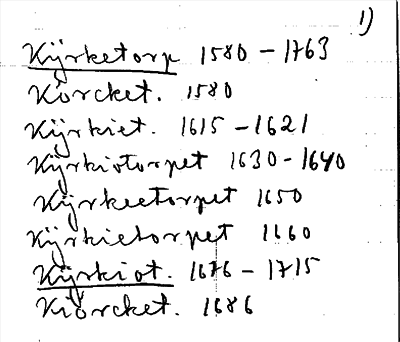 1)
Kÿrketorp 1580 - 1763
Körcket. 1580
Kÿrkiet. 1615 - 1621
Kÿrkiotorpet 1630 - 1640
Kÿrkeetorpet 1650
Kÿrkietorpet 1660
Kÿrkiot. 1676 - 1715
Kiörcket. 1686